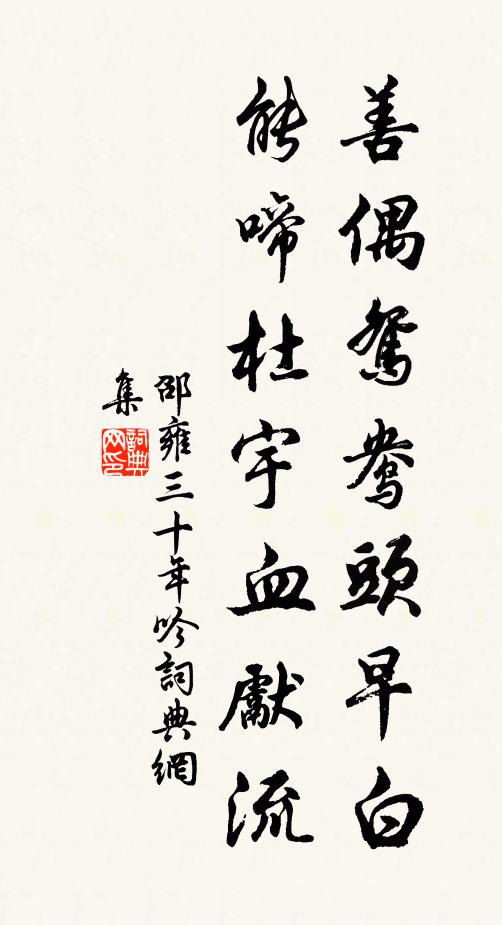 善偶鴛鴦頭早白
能啼杜宇血獻流
邵雍三十年吟詞典網
集
詞典
网印